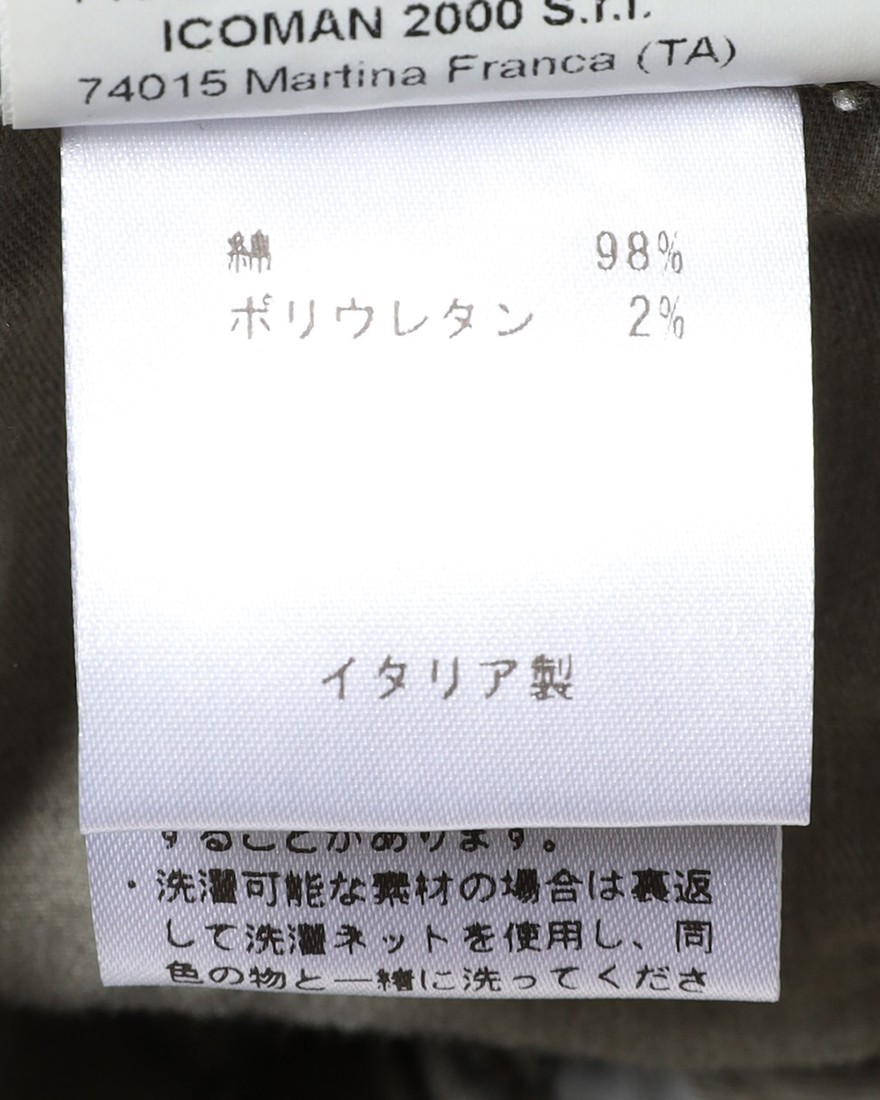 ICOMAN 2000 S.r.l.
74015 Martina Franca (TA)
綿 98%
ポリウレタン 2%
イタリア製
することがあります。
・洗濯可能な素材の場合は裏返
して洗濯ネットを使用し、同
色の物と一緒に洗ってくださ